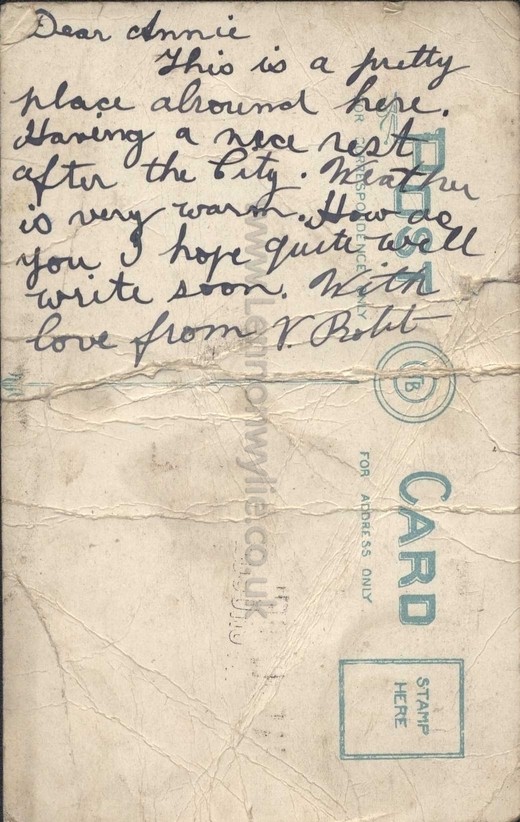 Dear Annie
This is a pretty
place alround here.
Having a nice rest
after the City. Weather
is very warm. How do
you I hope quite well
write soon. With
love from V. Robt
POST CARD
FOR CORRESPONDENCE ONLY
FOR ADDRESS ONLY
STAMP
HERE
www.Lennonwylie.co.uk